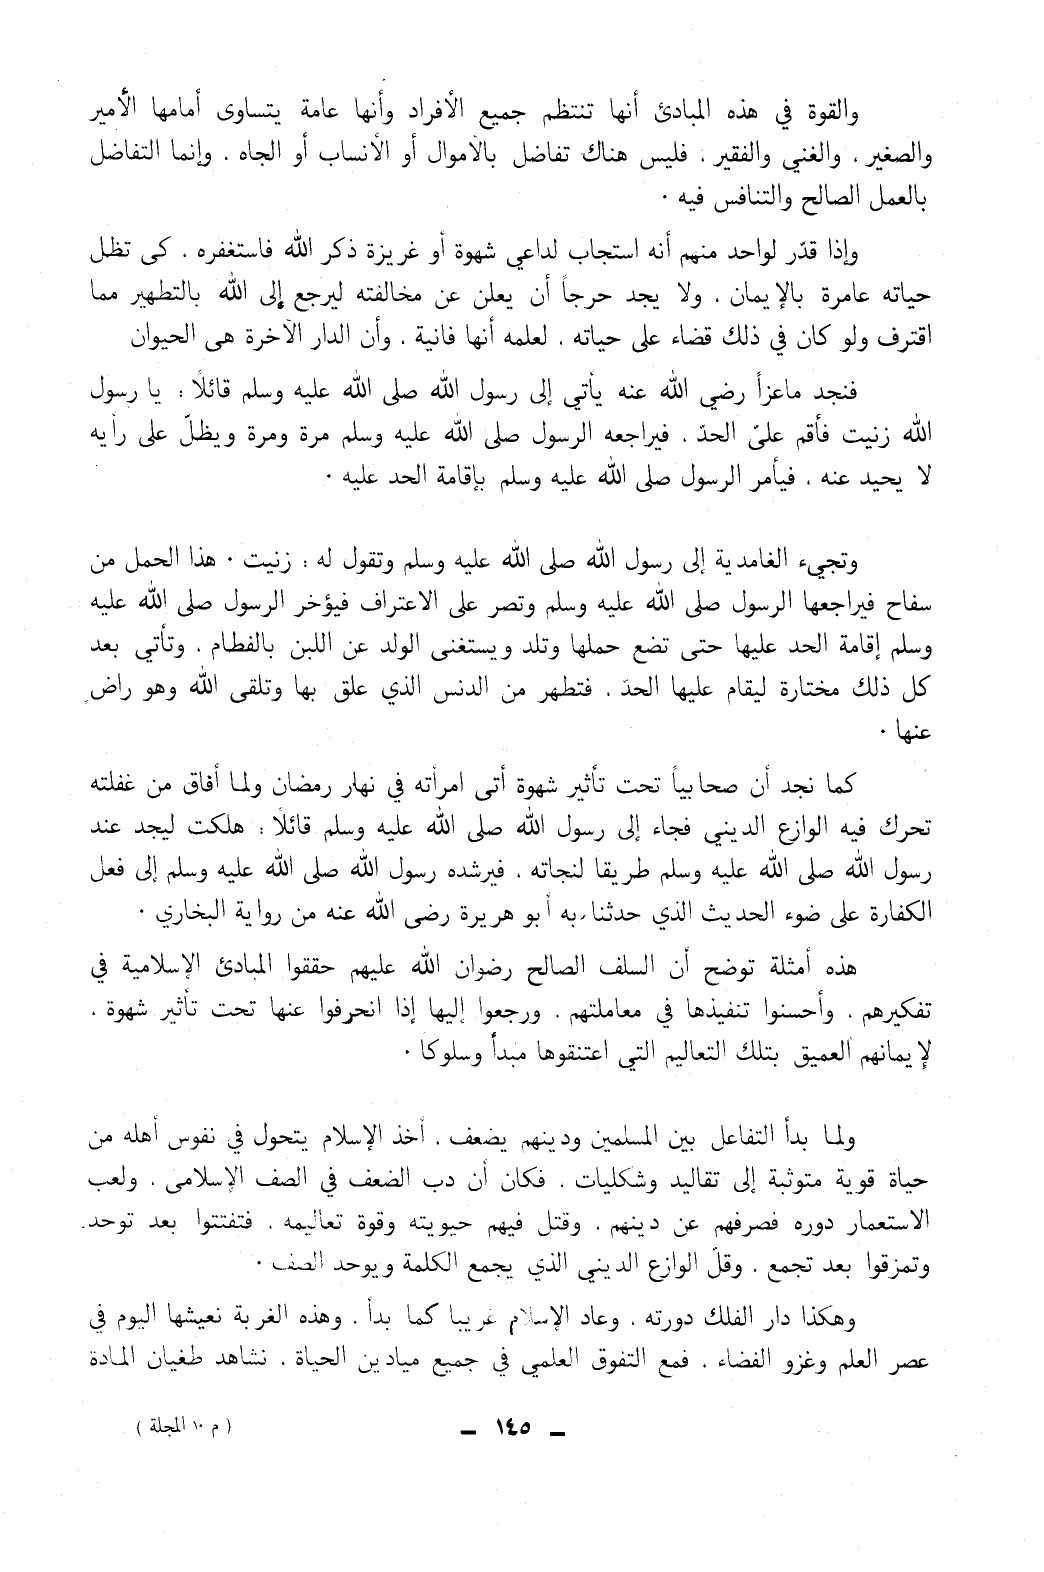 والقوة في هذه المبادئ أنها تنتظم جميع الأفراد وأنها عامة يتساوى أمامها الأمير
والصغير ، والغني والفقير ، فليس هناك تفاضل بالأموال أو الأنساب أو الجاه ، وإنما التفاضل
بالعمل الصالح والتنافس فيه ٠
وإذا قدّر لواحد منهم أنه استجاب لداعي شهوة أو غريزة ذكر الله فاستغفره ، كى تظل
حياته عامرة بالإيمان ، ولا يجد حرجاً أن يعلن عن مخالفته ليرجع إلى الله بالتطهير مما
اقترف ولو كان في ذلك قضاء على حياته ، لعلمه أنها فانية ، وأن الدار الآخرة هى الحيوان
فنجد ماعزاً رضي الله عنه يأتي إلى رسول الله صلى الله عليه وسلم قائلاً : يا رسول
الله زنيت فأقم علىّ الحدّ ، فيراجعه الرسول صلى الله عليه وسلم مرة ومرة ويظلّ على رأيه
لا يحيد عنه ، فيأمر الرسول صلى الله عليه وسلم بإقامة الحد عليه ٠
وتجيء الغامدية إلى رسول الله صلى الله عليه وسلم وتقول له : زنيت ٠ هذا الحمل من
سفاح فيراجعها الرسول صلى الله عليه وسلم وتصر على الاعتراف فيؤخر الرسول صلى الله عليه
وسلم إقامة الحد عليها حتى تضع حملها وتلد ويستغنى الولد عن اللبن بالفطام ، وتأتي بعد
كل ذلك مختارة ليقام عليها الحدّ ، فتطهر من الدنس الذي علق بها وتلقى الله وهو راضٍ
عنها ٠
كما نجد أن صحابياً تحت تأثير شهوة أتى امرأته في نهار رمضان ولما أفاق من غفلته
تحرك فيه الوازع الديني فجاء إلى رسول الله صلى الله عليه وسلم قائلاً : هلكت ليجد عند
رسول الله صلى الله عليه وسلم طريقا لنجاته ، فيرشده رسول الله صلى الله عليه وسلم إلى فعل
الكفارة على ضوء الحديث الذي حدثنا به أبو هريرة رضى الله عنه من رواية البخاري ٠
هذه أمثلة توضح أن السلف الصالح رضوان الله عليهم حققوا المبادئ الإسلامية في
تفكيرهم ، وأحسنوا تنفيذها في معاملتهم ، ورجعوا إليها إذا انحرفوا عنها تحت تأثير شهوة ،
لإيمانهم العميق بتلك التعاليم التي اعتنقوها مبدأ وسلوكا ٠
ولما بدأ التفاعل بين المسلمين ودينهم يضعف ، أخذ الإسلام يتحول في نفوس أهله من
حياة قوية متوثبة إلى تقاليد وشكليات ، فكان أن دب الضعف في الصف الإسلامى ، ولعب
الاستعمار دوره فصرفهم عن دينهم ، وقتل فيهم حيويته وقوة تعاليمه ، فتفتتوا بعد توحد،
وتمزقوا بعد تجمع ، وقلّ الوازع الديني الذي يجمع الكلمة ويوحد الصف ٠
وهكذا دار الفلك دورته ، وعاد الإسلام غريبا كما بدأ ، وهذه الغربة نعيشها اليوم في
عصر العلم وغزو الفضاء ، فمع التفوق العلمي في جميع ميادين الحياة ، نشاهد طغيان المادة
ـ ١٤٥ ـ
( م ١٠ المجلة )